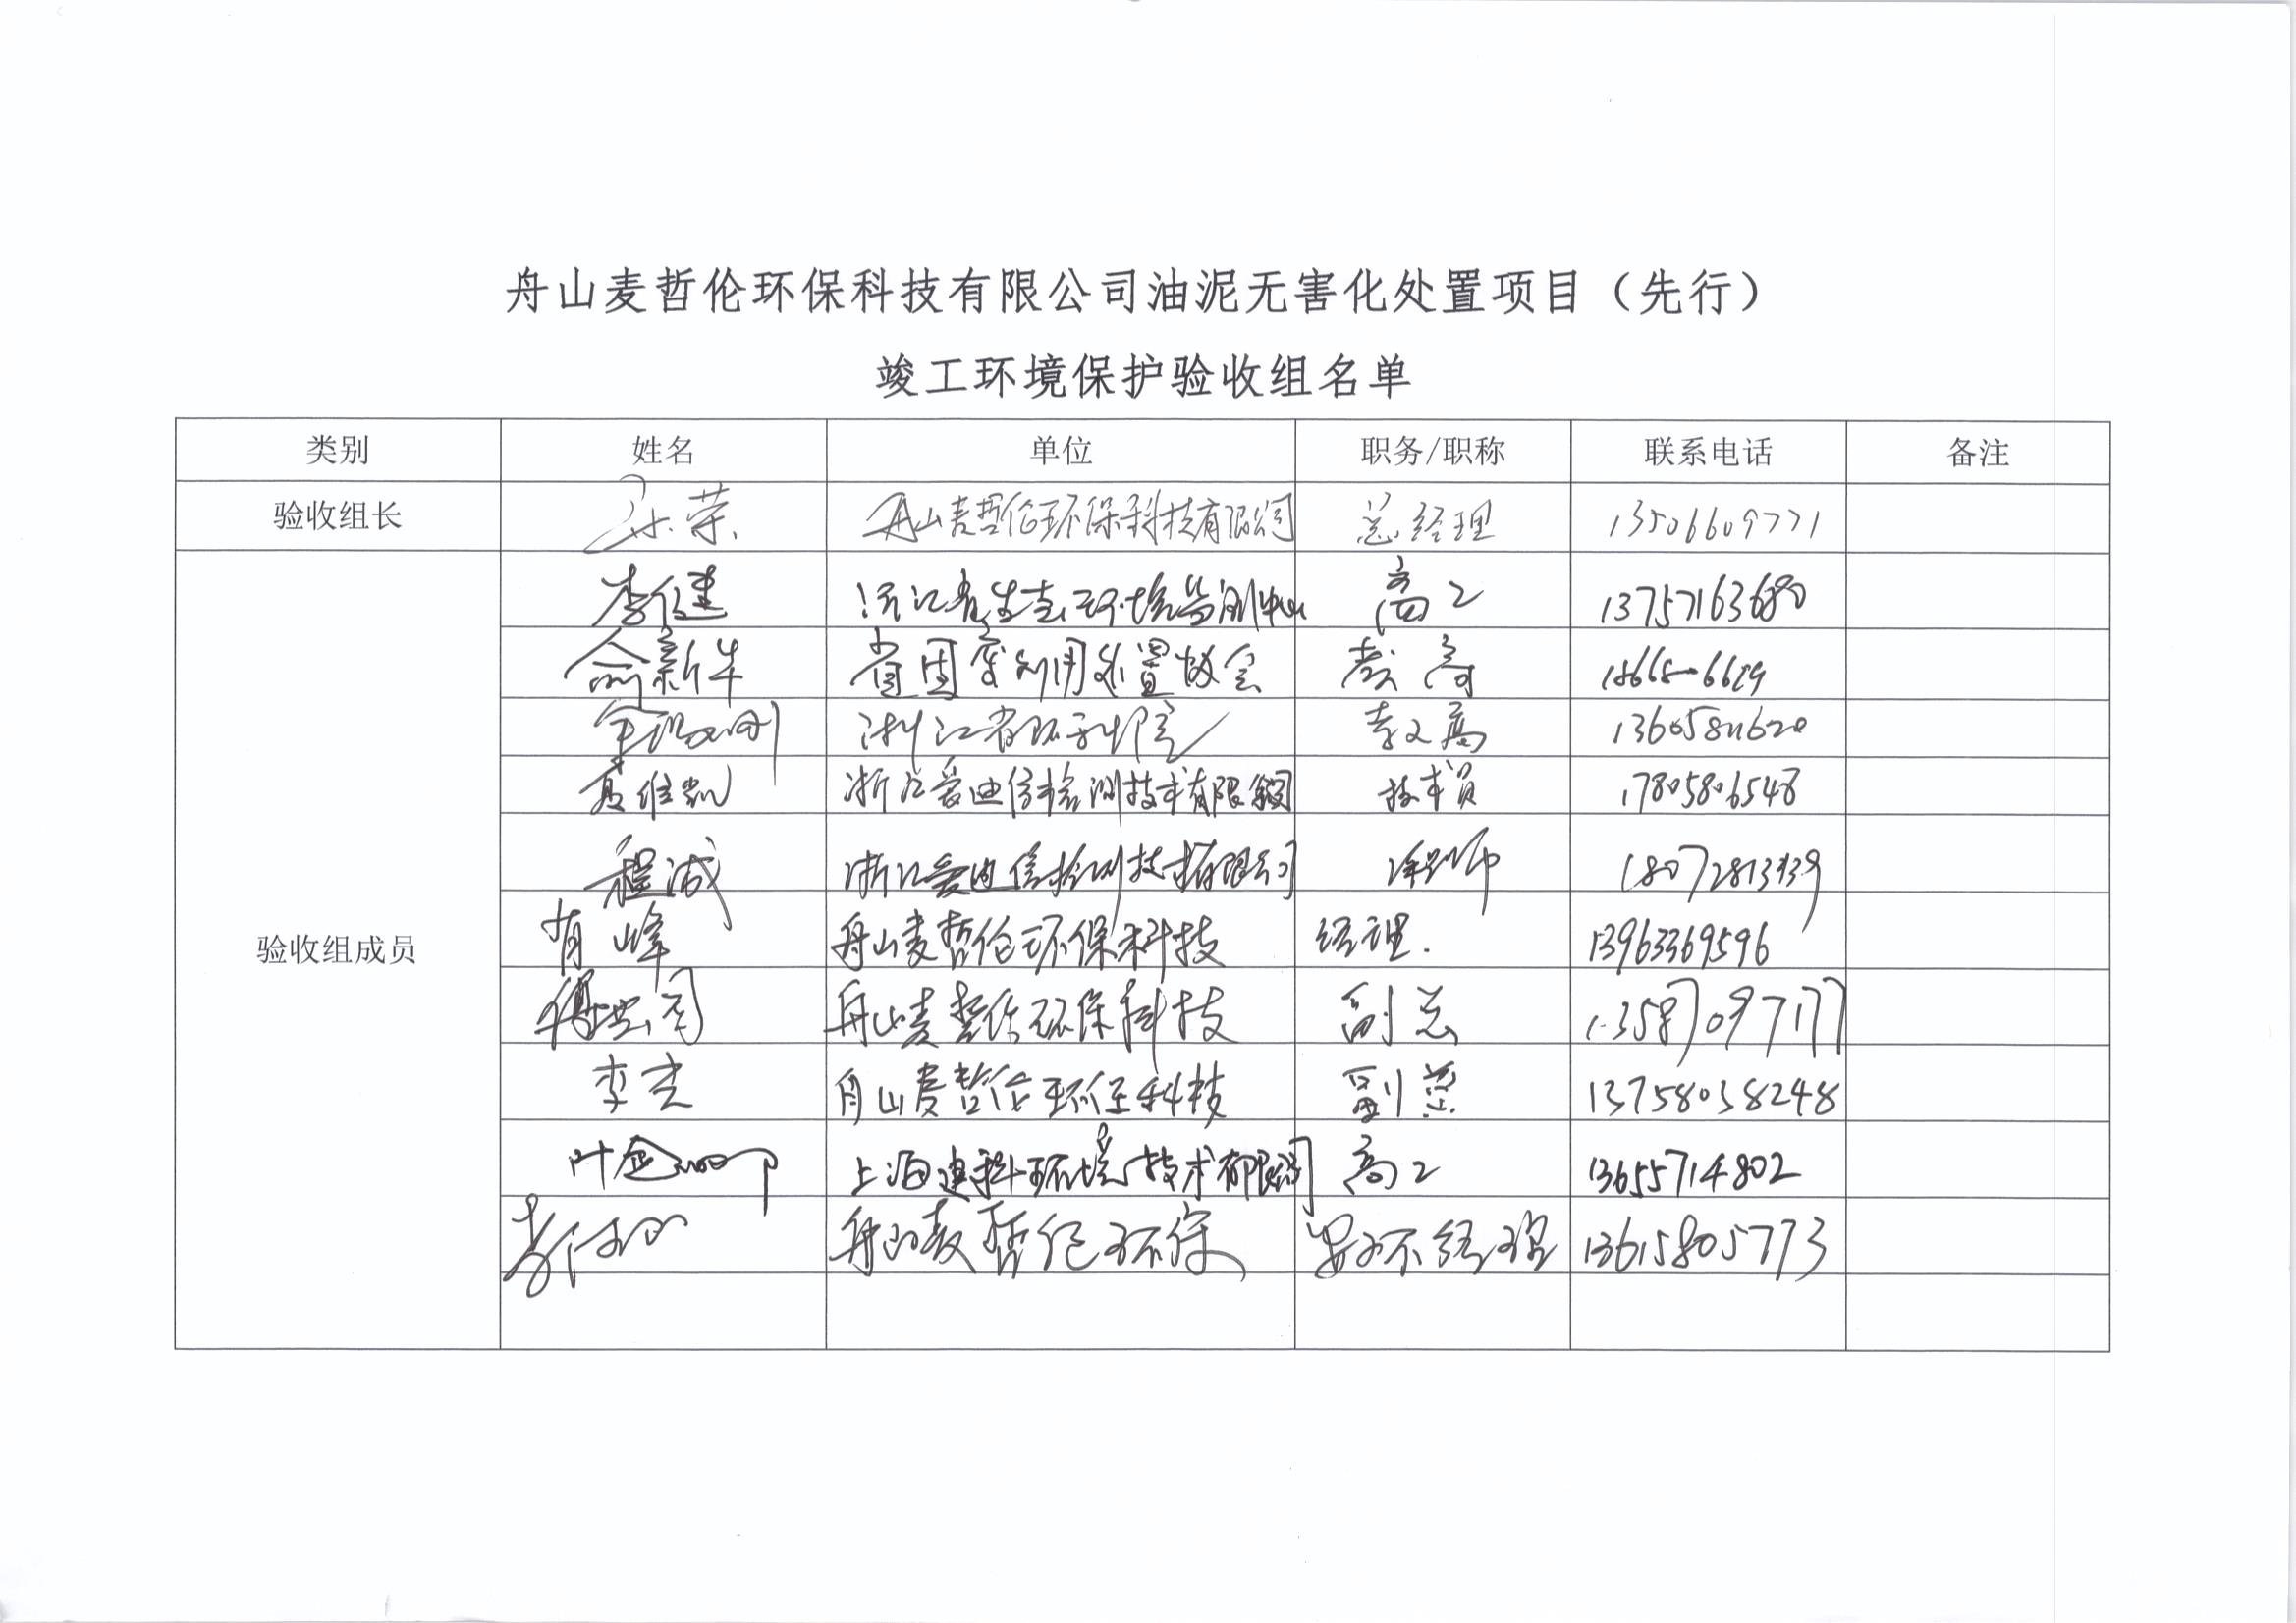 舟山麦哲伦环保科技有限公司油泥无害化处置项目（先行）
竣工环境保护验收组名单
类别 姓名 单位 职务/职称 联系电话 备注
验收组长 孙荣 舟山麦哲伦环保科技有限公司 总经理 13506609771
验收组成员
李健 浙江省生态环境监测中心 高工 13757163680
俞新华 省固废利用处置协会 教高
浙江省环科院 教高
夏维凯 浙江爱迪信检测技术有限公司 技术员 17805806548
程诚 浙江爱迪信检测技术有限公司 工程师
有峰 舟山麦哲伦环保科技 经理. 13963369596
舟山麦哲伦环保科技 副总 13587097177
李杰 舟山麦哲伦环保科技 副总 13758038248
叶 上海建科环境技术有限公司 高工 13655714802
李 舟山麦哲伦环保 安环经理 13615805773